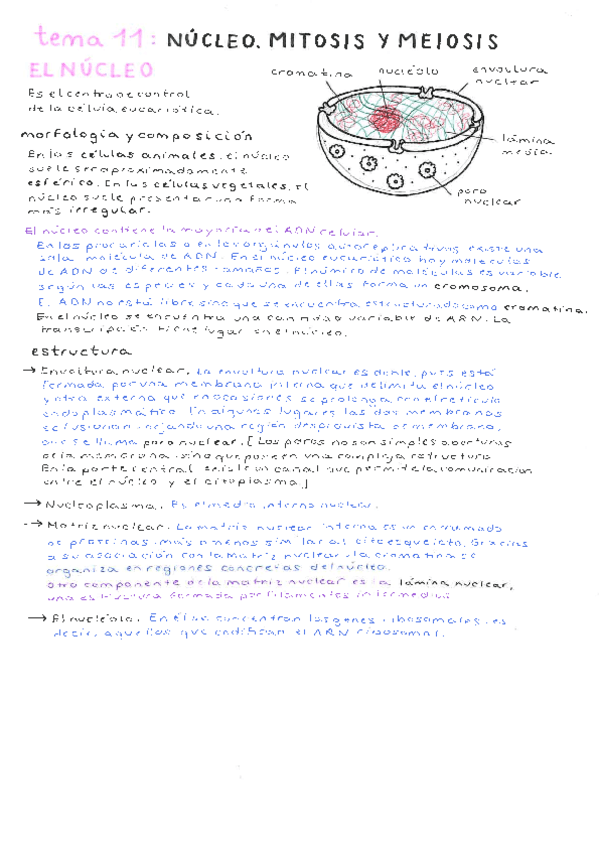 tema 11: NÚCLEO. MITOSIS Y MEIOSIS
EL NÚCLEO
cromatina
nucléolo
envoltura
nuclear
lámina
media
poro
nuclear
Es el centro de control
de la célula eucariótica.
morfología y composición
En las células animales, el núcleo
suele ser aproximadamente
esférico. En las células vegetales, el
núcleo suele presentar una forma
más irregular.
El núcleo contiene la mayoría del ADN celular.
En los procariotas o en los orgánulos autoreplicativos existe una
sola molécula de ADN. En el núcleo eucariótico hay moléculas
de ADN de diferentes tamaños. El número de moléculas es variable
según las especies y cada una de ellas forma un cromosoma.
El ADN no está libre sino que se encuentra estructurado como cromatina.
En el núcleo se encuentra una cantidad variable de ARN. La
transcripción tiene lugar en el núcleo.
estructura
→ Envoltura nuclear. La envoltura nuclear es doble, pues está
formada por una membrana interna que delimita el núcleo
y otra externa que en ocasiones se prolonga con el retículo
endoplasmático. En algunos lugares las dos membranas
se fusionan dejando una región desprovista de membrana,
que se llama poro nuclear. [Los poros no son simples aberturas
de la membrana, sino que poseen una compleja estructura.
En la parte central existe un canal que permite la comunicación
entre el núcleo y el citoplasma.]
→ Nucleoplasma. Es el medio interno nuclear.
→ Matriz nuclear. La matriz nuclear interna es un entramado
de proteínas, más o menos similar al citoesqueleto. Gracias
a su asociación con la matriz nuclear, la cromatina se
organiza en regiones concretas del núcleo.
Otro componente de la matriz nuclear es la lámina nuclear,
una estructura formada por filamentos intermedios.
→ El nucléolo. En él se concentran los genes ribosomales, es
decir, aquellos que codifican el ARN ribosomal.